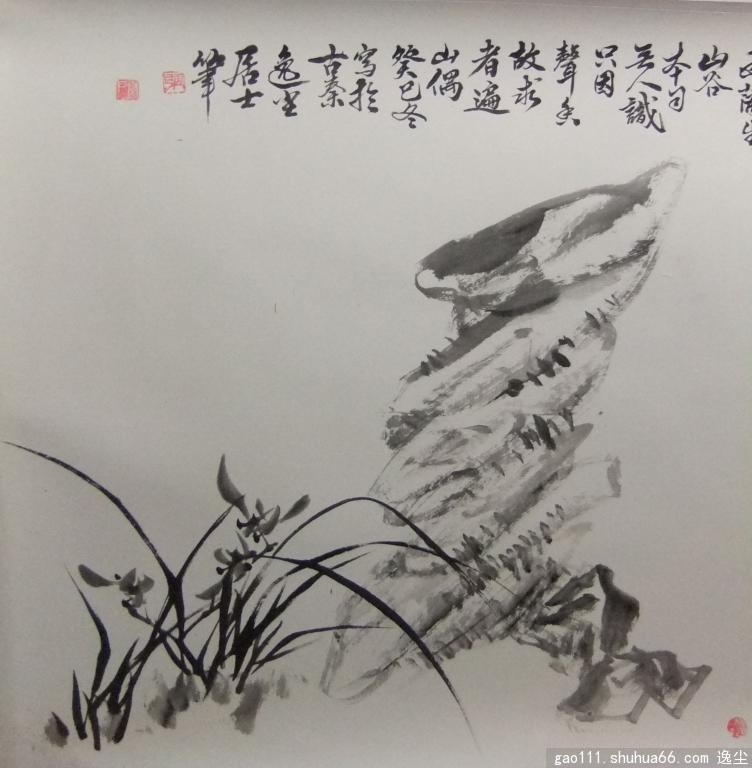 山谷
本句
無人識
只因
聲香
故求
者遍
山偶
癸巳冬
寫於
古秦
逸尘
居士
筆
gao111.shuhua66.com 逸尘